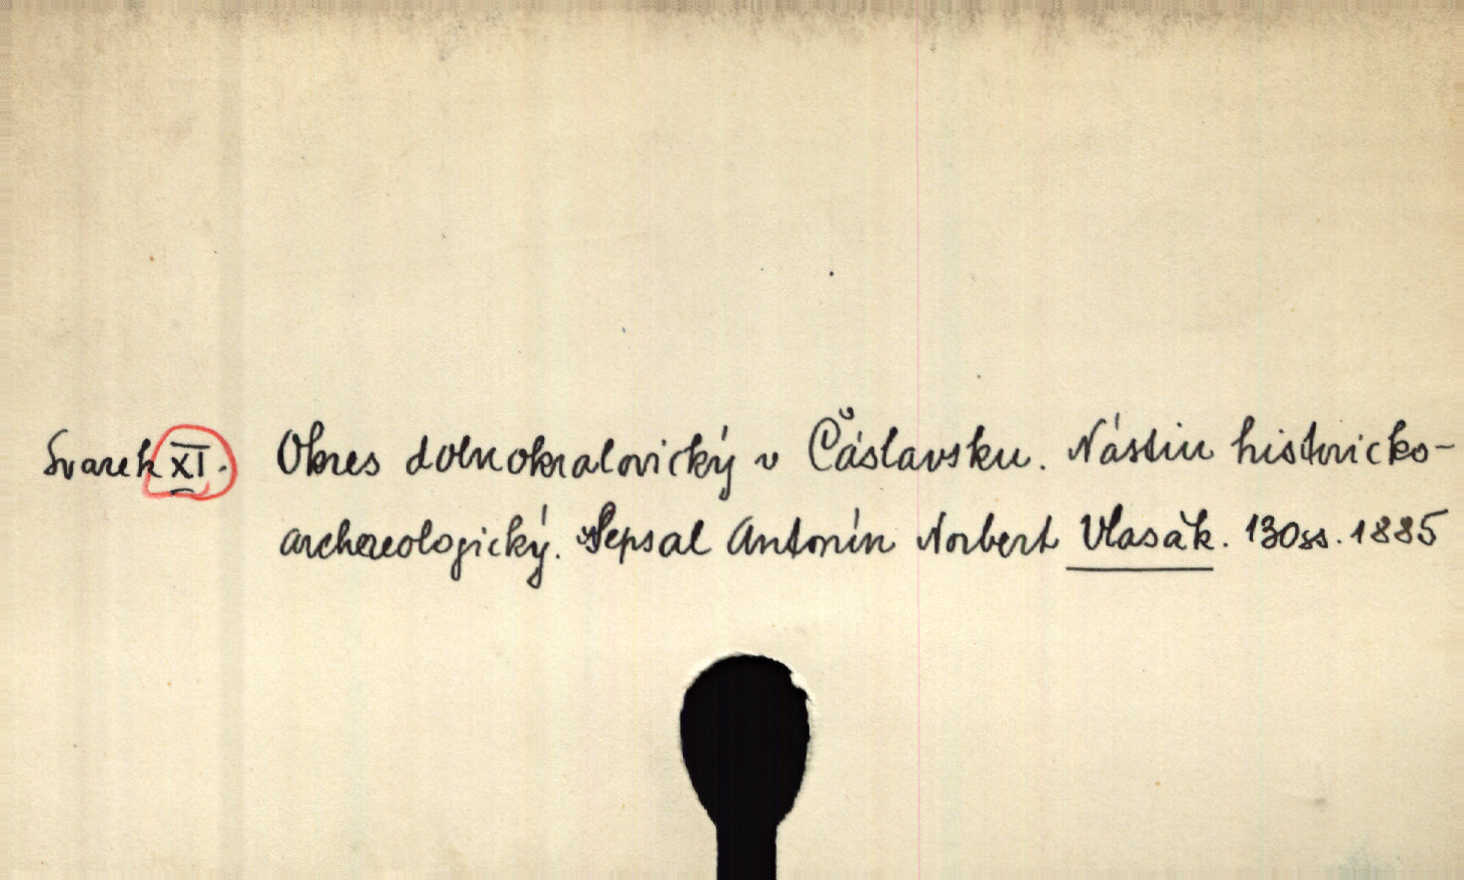 Svazek XI. Okres dolnokralovický v Čáslavsku. Nástin historicko-
archaeologický. Sepsal Antonín Norbert Vlasák. 130 ss. 1885